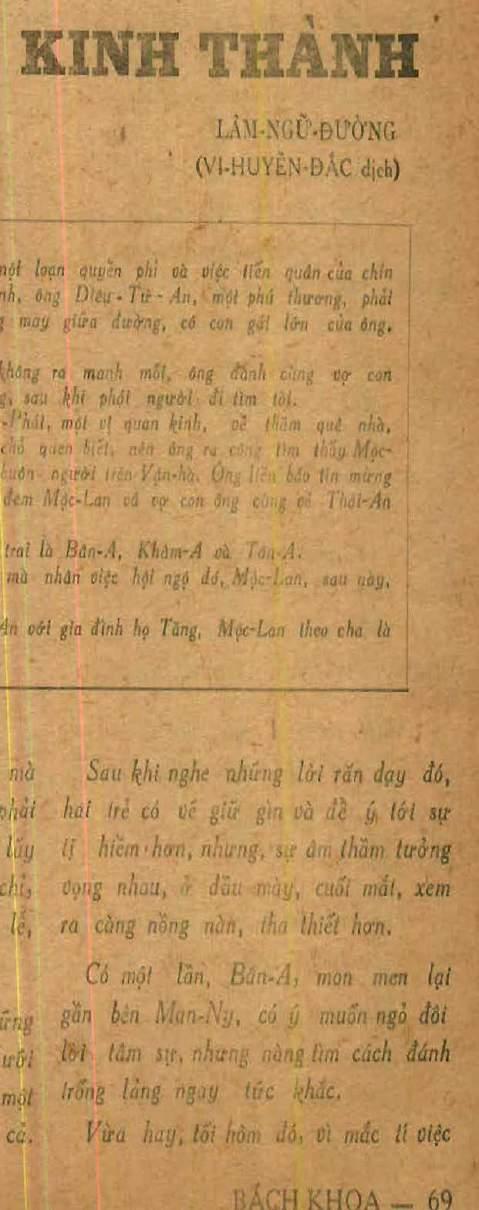 KINH THÀNH
LÂM-NGỮ-ĐƯỜNG
(VI-HUYỀN-ĐẮC dịch)
một loạn quyền phỉ và việc tiến quân của chín
nh, ông Diêu-Tử-An, một phú thương, phải
g may giữa đường, cô con gái lớn của ông,
không ra manh mối, ông đành cùng vợ con
g, sau khi phái người đi tìm tòi.
-Phái, một vị quan kinh, về thăm quê nhà,
chỗ quen biết, nên ông ra công tìm thấy Mộc-
buôn người trên Vận-hà. Ông liền báo tin mừng
đem Mộc-Lan và vợ con ông cùng về Thái-An
trai là Bân-A, Khâm-A và Tôn-A.
mà nhân việc hội ngộ đó, Mộc-Lan, sau này,
An với gia đình họ Tăng, Mộc-Lan theo cha là
mà
phải
lấy
chỉ,
lễ,
ững
ười
một
cả.
Sau khi nghe những lời răn dạy đó,
hai trẻ có vẻ giữ gìn và để ý tới sự
tị hiềm hơn, nhưng, sự âm thầm tưởng
vọng nhau, ở đầu mày, cuối mắt, xem
ra càng nồng nàn, tha thiết hơn.
Có một lần, Bân-A, mon men lại
gần bên Man-Ny, có ý muốn ngỏ đôi
lời tâm sự, nhưng nàng tìm cách đánh
trống lảng ngay tức khắc.
Vừa hay, tối hôm đó, vì mắc tí việc
BÁCH KHOA — 69